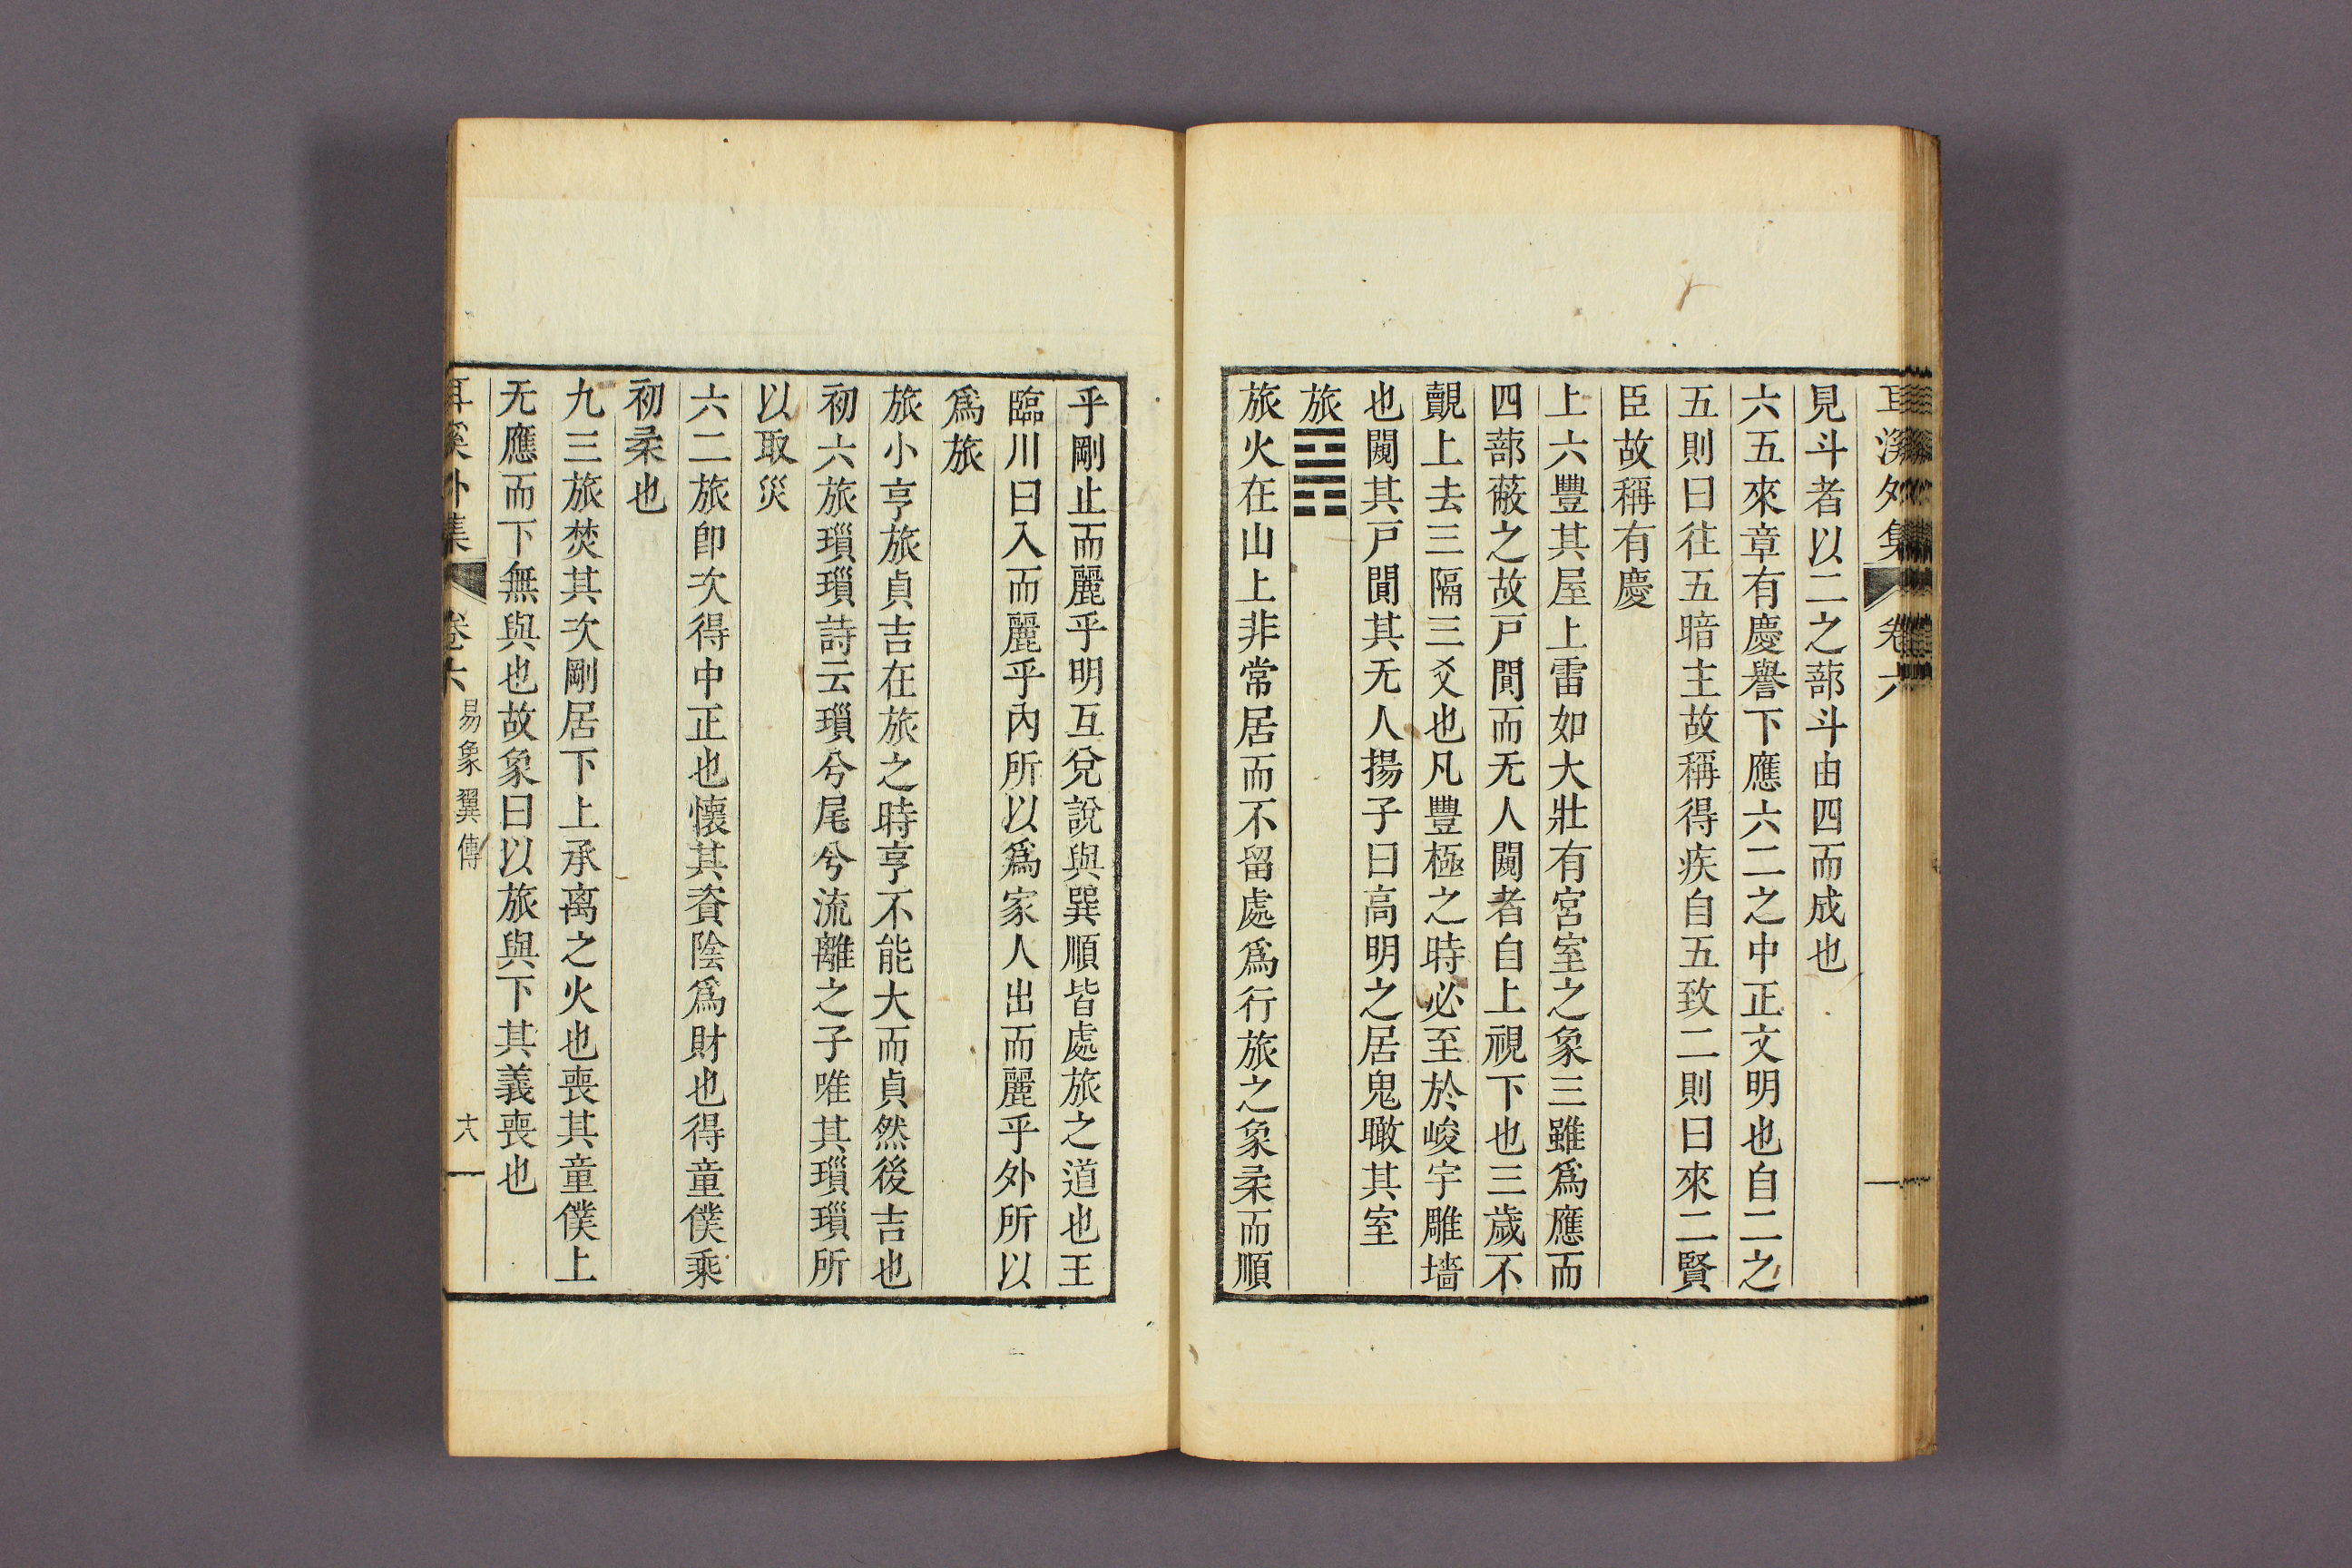 耳溪外集 卷六
見斗者以二之蔀斗由四而成也
六五來章有慶譽下應六二之中正文明也自二之
五則曰往五暗主故稱得疾自五致二則曰來二賢
臣故稱有慶
上六豐其屋上雷如大壯有宮室之象三雖爲應而
四蔀蔽之故戶闃而无人闃者自上視下也三歲不
覿上去三隔三爻也凡豐極之時必至於峻宇雕墻
也闃其戶闃其无人揚子曰高明之居鬼瞰其室
旅䷷
旅火在山上非常居而不留處爲行旅之象柔而順
乎剛止而麗乎明互兌說與巽順皆處旅之道也王
臨川曰入而麗乎內所以爲家人出而麗乎外所以
爲旅
旅小亨旅貞吉在旅之時亨不能大而貞然後吉也
初六旅瑣瑣詩云瑣兮尾兮流離之子唯其瑣瑣所
以取災
六二旅卽次得中正也懷其資陰爲財也得童僕乘
初柔也
九三旅焚其次剛居下上承离之火也喪其童僕上
无應而下無與也故象曰以旅與下其義喪也
耳溪外集 卷六 易象翼傳 十八